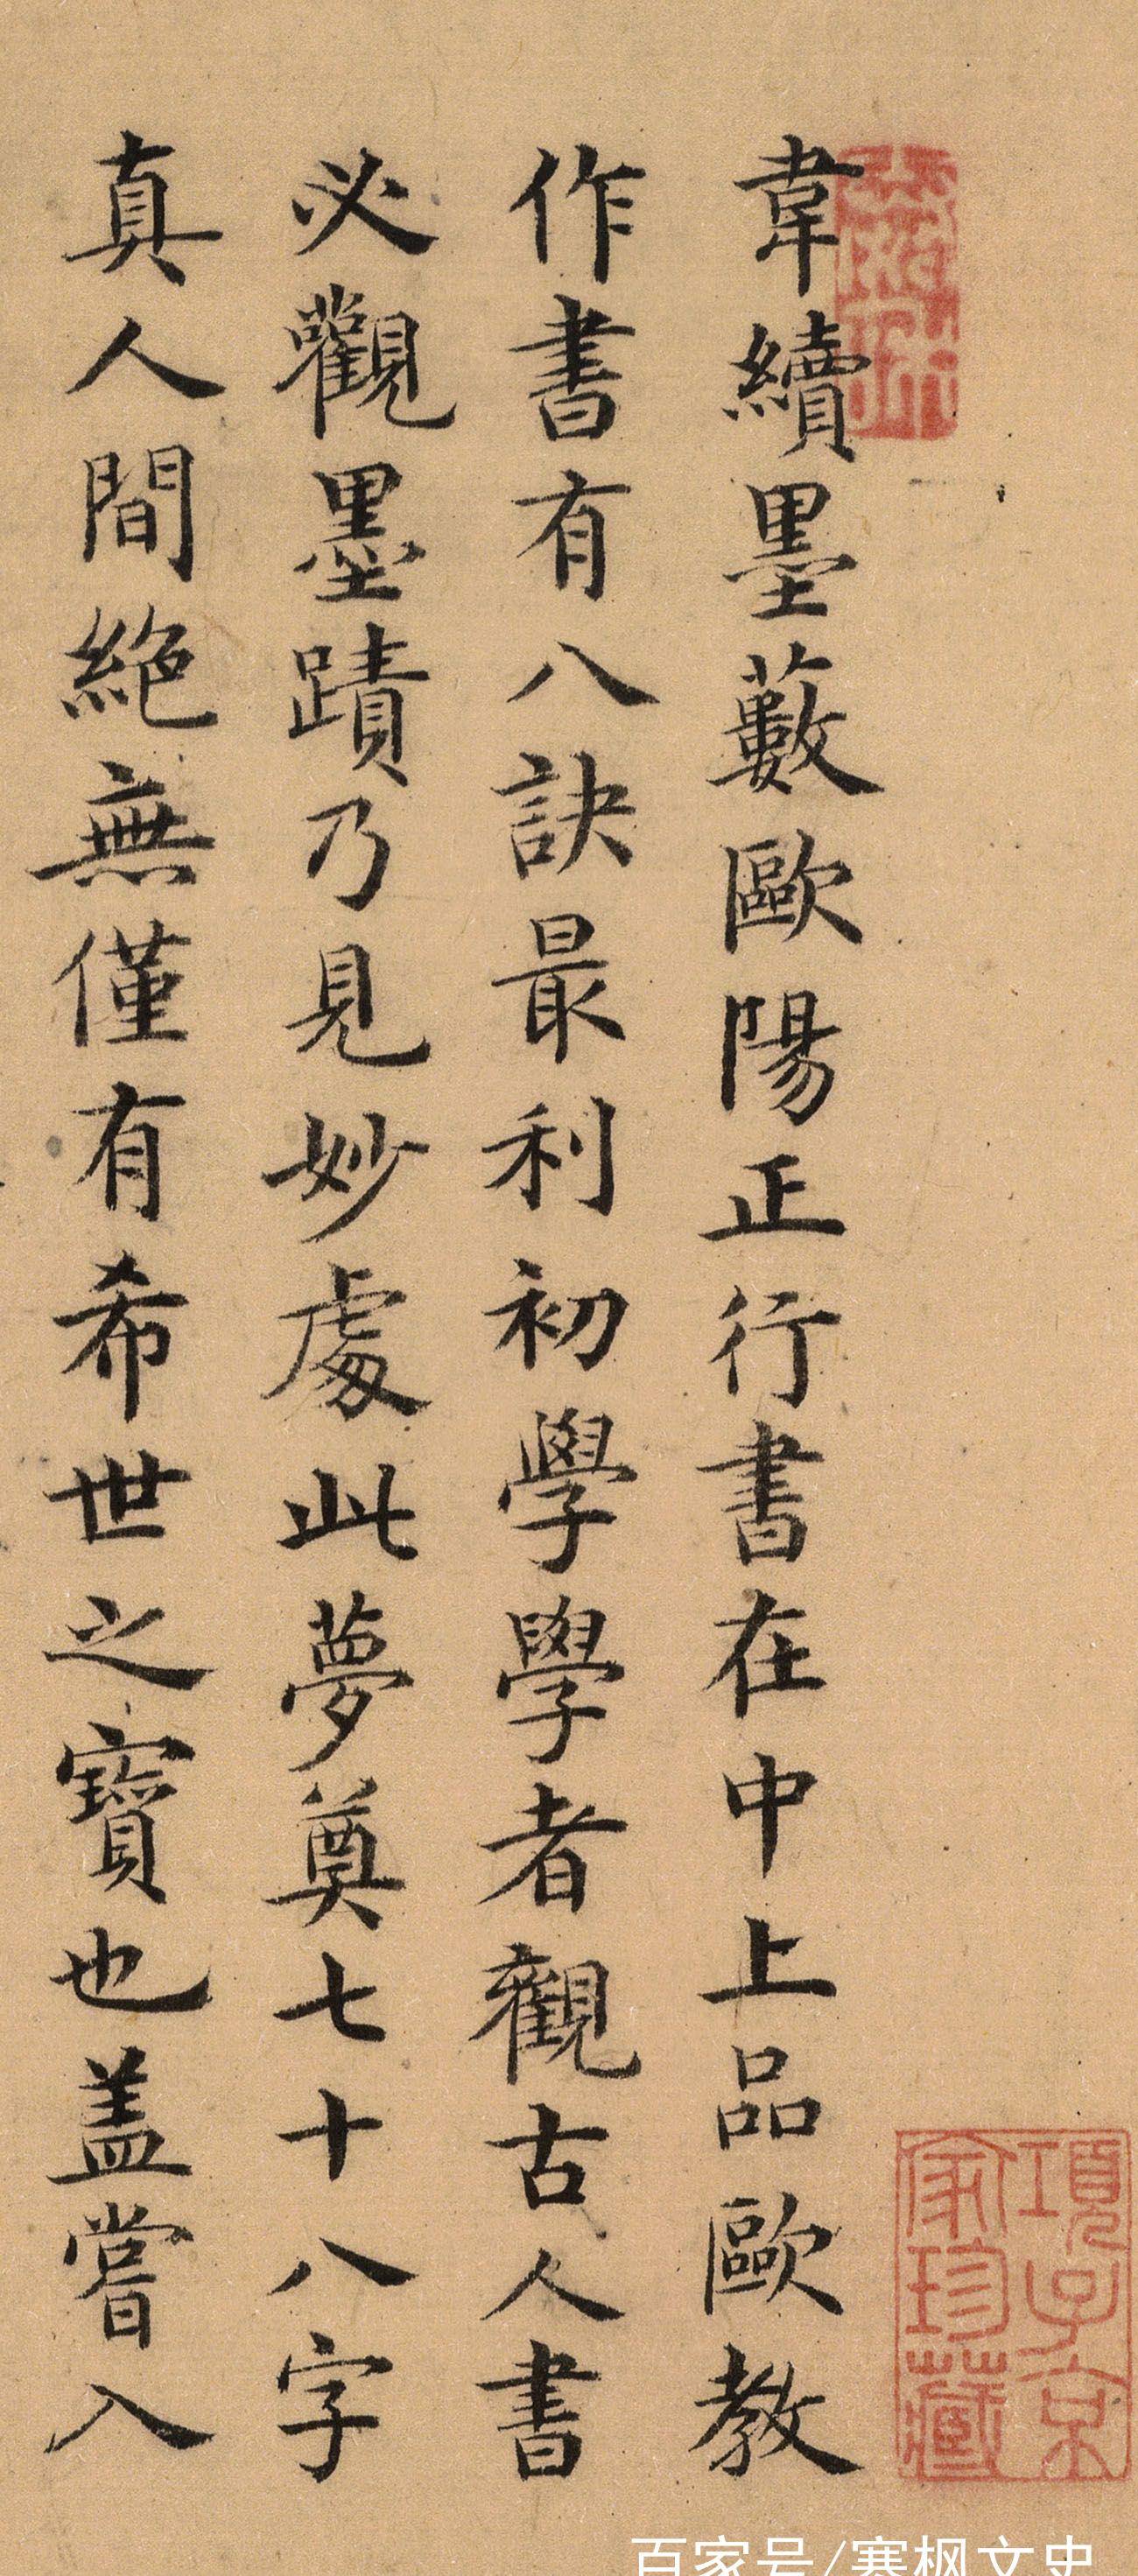 韋續墨藪歐陽正行書在中上品歐教
作書有八訣最利初學學者觀古人書
必觀墨蹟乃見妙處此夢奠七十八字
真人間絶無僅有希世之寶也盖嘗入
項子京
家珍藏
百家号/寒枫文史